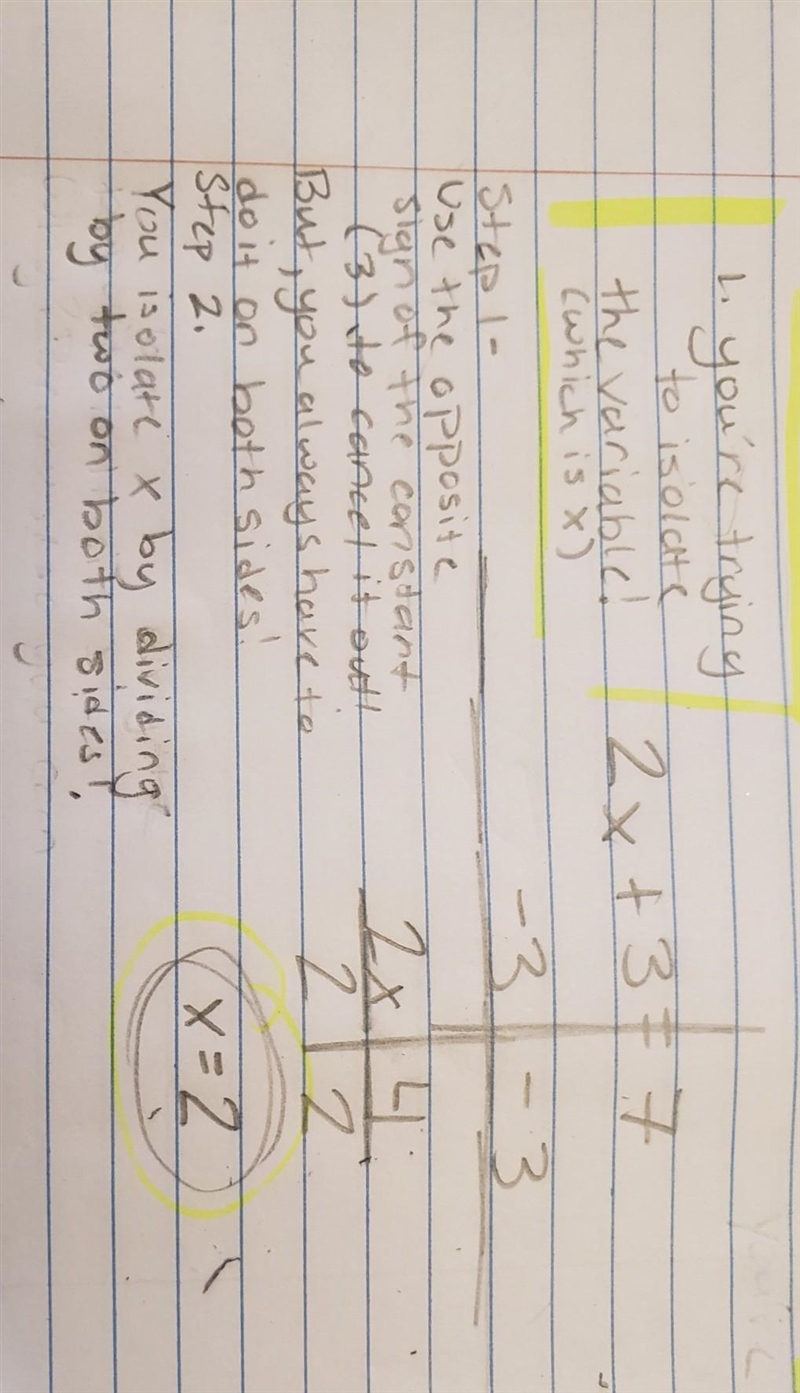 1. you're trying
to isolate
the variable!
(which is x)
2x + 3 = 7
-3 -3
Step 1-
Use the opposite
sign of the constant
(3) to cancel it out!
But, you always have to
do it on both sides!
2x 4
2 2
Step 2.
You isolate x by dividing
by two on both sides!
x = 2